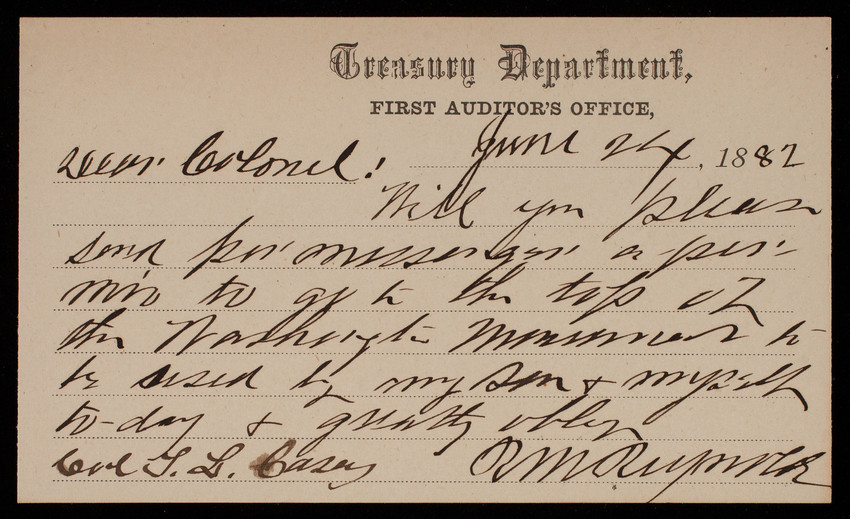 Treasury Department,
FIRST AUDITOR'S OFFICE,
June 24, 1882
Dear Colonel:
Will you please
send per messenger a per-
mit to go to the top of
the Washington Monument to
be used by my son & myself
to-day & greatly oblige
Col T. L. Casey R M Reynolds